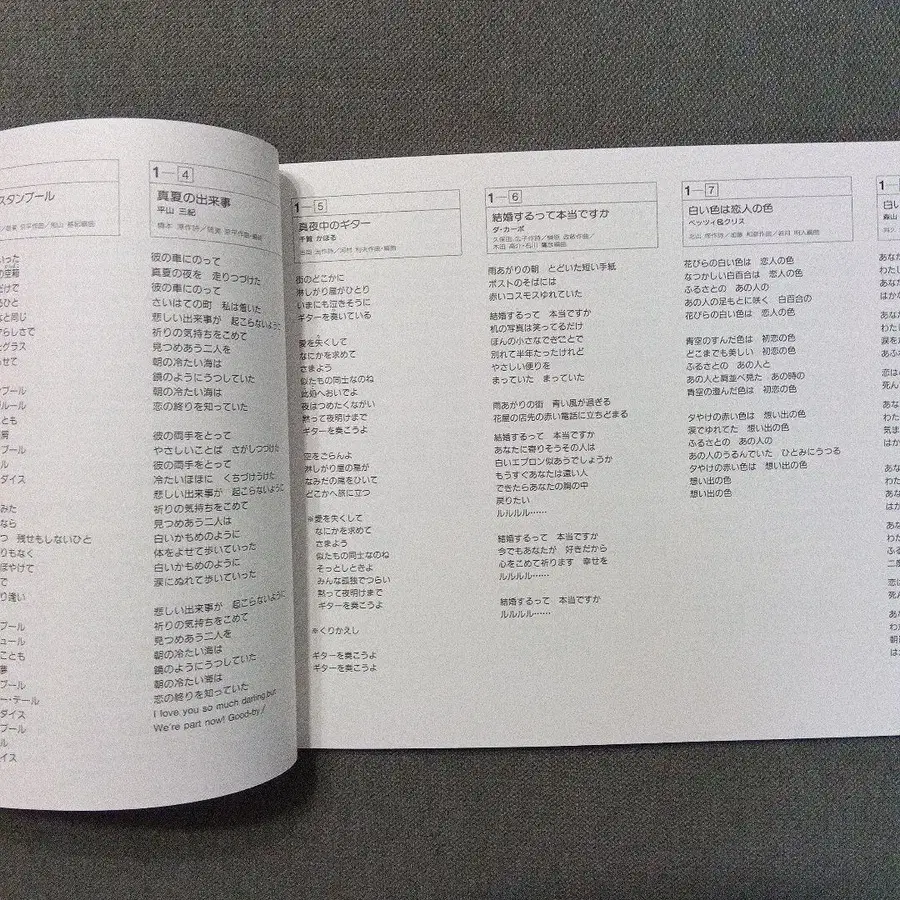 スタンブール
いった
の空箱
だけで
るひと
なと同じ
ずらしさで
たグラス
らせて
ンブール
ルルール
とも
房
ブール
ル
ダイス
みた
なら
つ 残せもしないひと
りもなく
ぼやけて
で
り逢い
ブール
ュール
ことも
夢
ブール
ー・テール
ダイス
ブール
ル
イス
1-4
真夏の出来事
平山 三紀
橋本 淳作詩/筒美 京平作曲・編曲
彼の車にのって
真夏の夜を 走りつづけた
彼の車にのって
さいはての町 私は着いた
悲しい出来事が 起こらないように
祈りの気持ちをこめて
見つめあう二人を
朝の冷たい海は
鏡のようにうつしていた
朝の冷たい海は
恋の終りを知っていた
彼の両手をとって
やさしいことば さがしつづけた
彼の両手をとって
冷たいほほに くちづけうけた
悲しい出来事が 起こらないように
祈りの気持ちをこめて
見つめあう二人は
白いかもめのように
体をよせて歩いていった
白いかもめのように
涙にぬれて歩いていった
悲しい出来事が 起こらないように
祈りの気持ちをこめて
見つめあう二人を
朝の冷たい海は
鏡のようにうつしていた
朝の冷たい海は
恋の終りを知っていた
I love you so much darling,but
We're part now! Good-by!
1-5
真夜中のギター
千賀 かほる
街のどこかに
淋しがり屋がひとり
いまにも泣きそうに
ギターを奏いている
愛を失くして
なにかを求めて
さまよう
似たもの同士なのね
此処へおいでよ
夜はつめたくながい
黙って夜明けまで
ギターを奏こうよ
空をごらんよ
淋しがり屋の星が
なみだの隅をひいて
どこかへ旅に立つ
※愛を失くして
なにかを求めて
さまよう
似たもの同士なのね
そっとしときよ
みんな孤独でつらい
黙って夜明けまで
ギターを奏こうよ
※くりかえし
ギターを奏こうよ
ギターを奏こうよ
1-6
結婚するって本当ですか
ダ・カーポ
雨あがりの朝 とどいた短い手紙
ポストのそばには
赤いコスモスゆれていた
結婚するって 本当ですか
机の写真は笑ってるだけ
ほんの小さなできごとで
別れて半年たったけれど
やさしい便りを
まっていた まっていた
雨あがりの街 青い風が過ぎる
花屋の店先の赤い電話に立ちどまる
結婚するって 本当ですか
あなたに寄りそうその人は
白いエプロン似あうでしょうか
もうすぐあなたは遠い人
できたらあなたの胸の中
戻りたい
ルルルル……
結婚するって 本当ですか
今でもあなたが 好きだから
心をこめて祈ります 幸せを
ルルルル……
結婚するって 本当ですか
ルルルル……
1-7
白い色は恋人の色
ベッツィ&クリス
北山 修作詩/加藤 和彦作曲/若月 明人編曲
花びらの白い色は 恋人の色
なつかしい白百合は 恋人の色
ふるさとの あの人の
あの人の足もとに咲く 白百合の
花びらの白い色は 恋人の色
青空のすんだ色は 初恋の色
どこまでも美しい 初恋の色
ふるさとの あの人と
あの人と肩並べ見た あの時の
青空の澄んだ色は 初恋の色
夕やけの赤い色は 想い出の色
涙でゆれてた 想い出の色
ふるさとの あの人の
あの人のうるんでいた ひとみにうつる
夕やけの赤い色は 想い出の色
想い出の色
想い出の色
1-
白い
森山